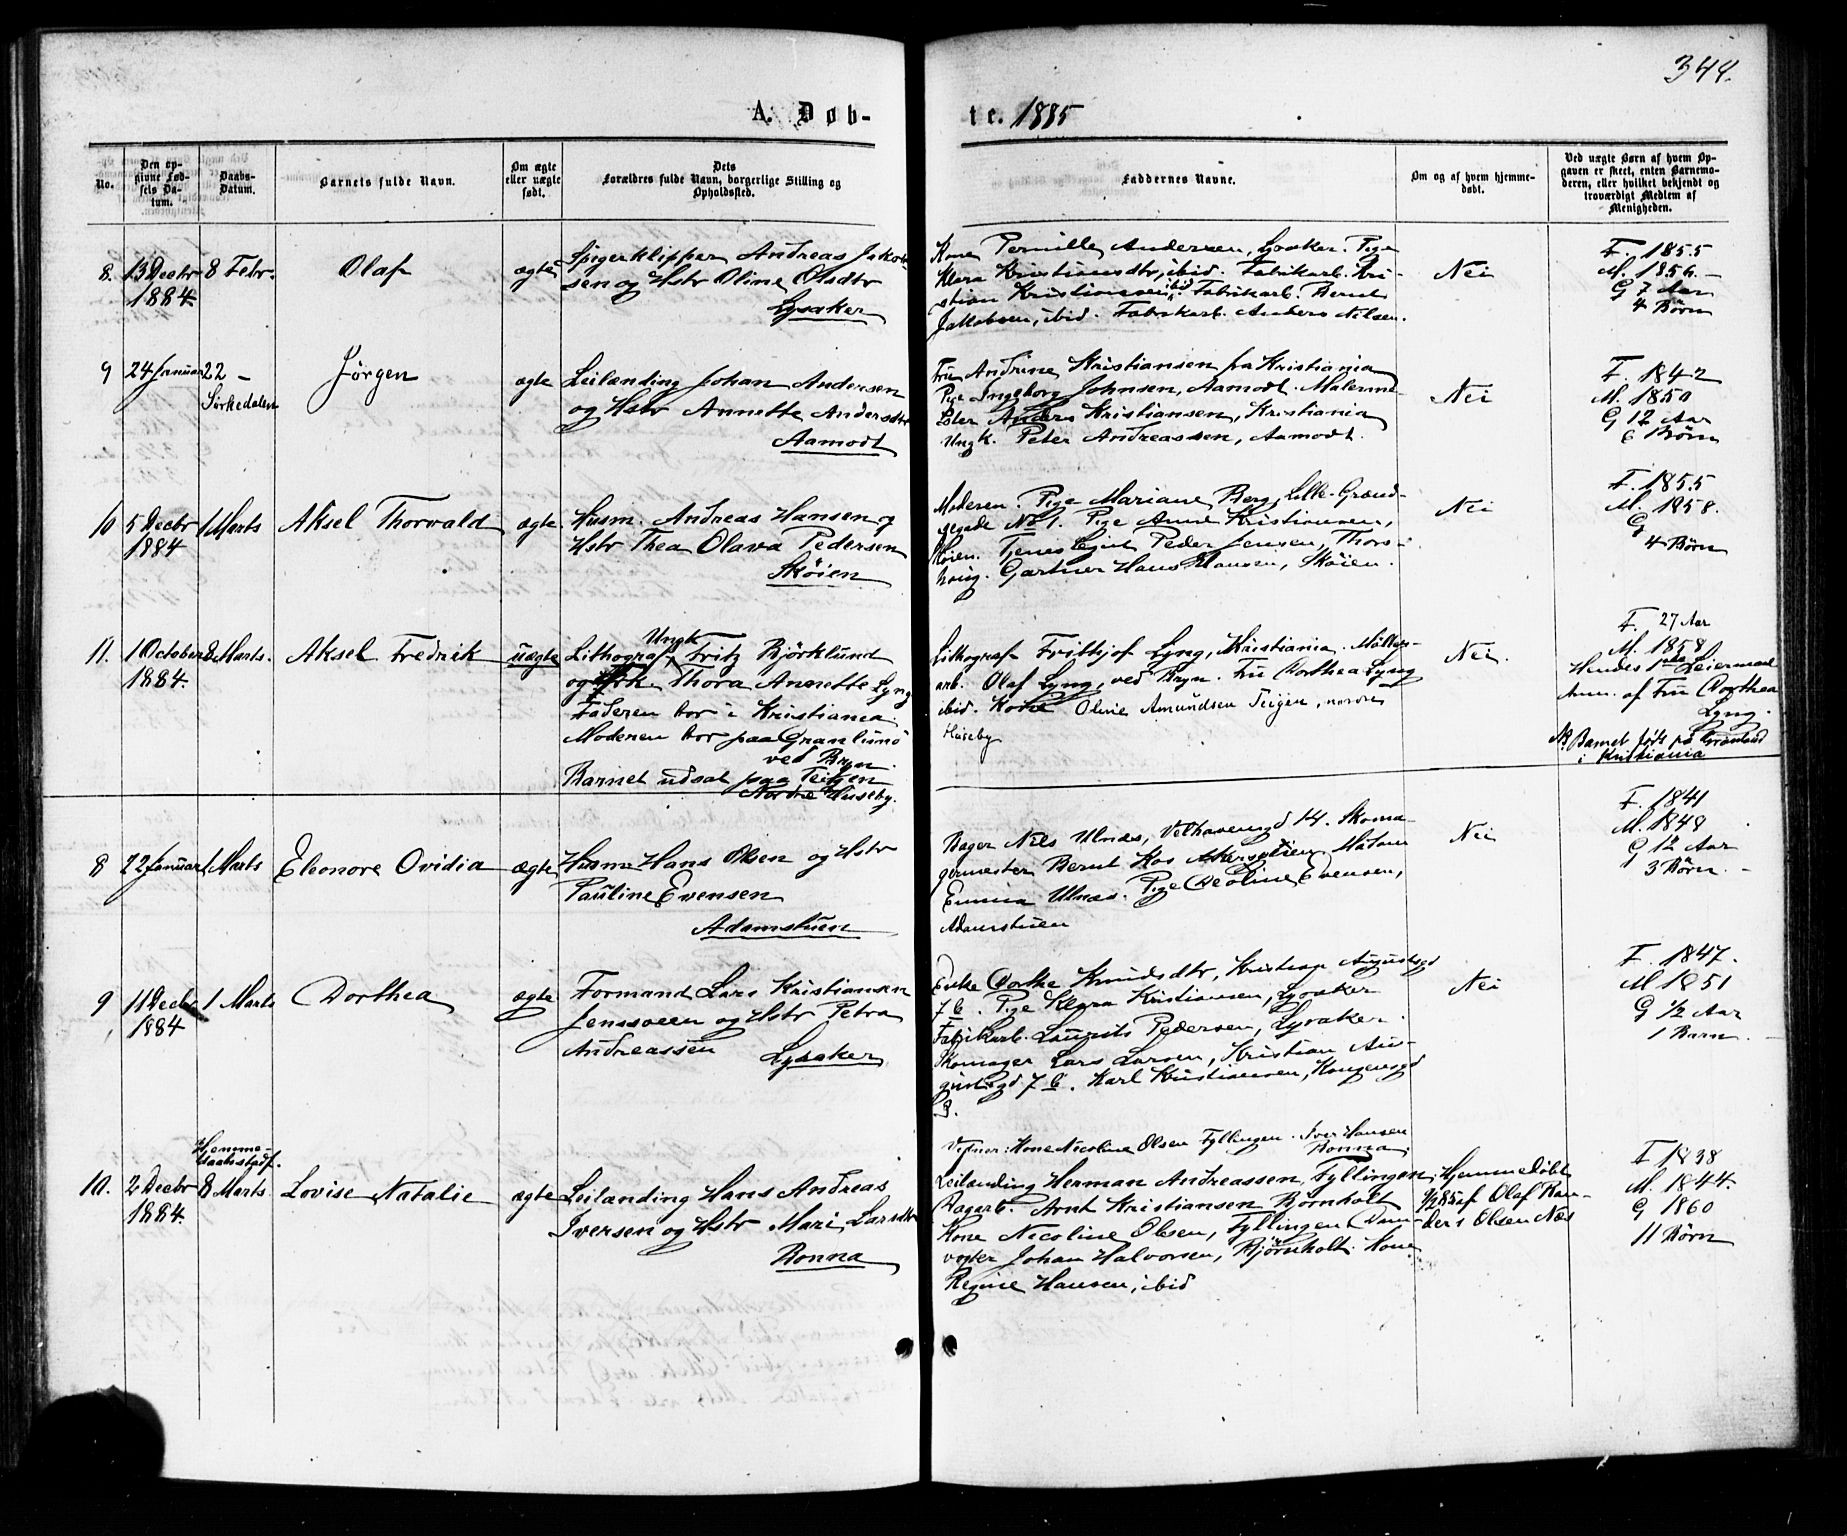 344.
A. Døb-
te. 1885
No.
Den op-
givne Fød-
sels Da-
tum.
Daabs-
Datum.
Barnets fulde Navn.
Om ægte
eller uægte
født.
Dets
Forældres fulde Navn, borgerlige Stilling og
Opholdssted.
Faddernes Navne.
Om og af hvem hjemme-
døbt.
Ved uægte Børn af hvem Op-
gaven er skeet, enten Barnemo-
deren, eller hvilket bekjendt og
troværdigt Medlem af
Menigheden.
8. 13 Decbr 8 Febr. Olaf ægte Spigerklipper Andreas Jakob-
1884. sen og Hstr Oline Olsdtr
Lysaker
Kone Pernille Andersen, Lysaker. Pige
Klara Kristiansdtr, ibid. Fabrikarb. Kri-
stian Kristiansen ibid. Fabrikarb. Bernt
Jakobsen, ibid. Fabrikarb. Anders Nilsen.
Nei
F. 1855
M. 1856.
G 7 Aar
4 Børn
9 24 Januar 22 – Jørgen ægte Leilænding Johan Andersen
Sørkedalen og Hstr Annette Andersdtr
Aamodt
Fru Andrine Kristiansen fra Kristiania
Pige Ingeborg Johnsen, Aamodt. Malerme-
ster Anders Kristiansen, Kristiania
Ungk. Peter Andreassen, Aamodt.
Nei
F. 1842
M. 1850
G 12 Aar
6 Børn
10 5 Decbr 1 Marts Aksel Thorvald ægte Husm. Andreas Hansen og
1884 Hstr Thea Olava Pedersen
Skøien
Moderen. Pige Mariane Berg, Lille Grænd-
segade No 1. Pige Anne Kristiansen,
Skøien. Tjenestegut Peder Jensen, Thors-
houg. Gartner Hans Hansen, Skøien.
Nei
F. 1855
M. 1858.
G
4 Børn
11. 1 October 8 Marts. Aksel Fredrik uægte Lithograf Ungk Fritz Bjørklund
1884. og Thora Annette Lyng
Faderen bor i Kristiania
Moderen bor paa Granlund
ved Bryn.
Barnet udsat paa Teigen
Nordre Huseby.
Lithograf Fritjof Lyng, Kristiania. Møller-
arb. Olaf Lyng, ved Bryn. Fru Dorthea Lyng
ibid. Kone Oline Amundsen Teigen, nordre
Huseby
Nei.
F. 27 Aar
M. 1858
Hendes 1ste Leiermaal
Anm. af Fru Dorthea
Lyng.
NB Barnet født på Grønland
i Kristiania
8 22 Januar 1 Marts Eleonore Ovidia ægte Husm Hans Olsen og Hstr
Pauline Evensen
Adamstuen
Bager Nils Ulnæs, Velhavensgd 14. Skoma-
germester Bernt Aas Akersveien. Madam
Emma Ulnæs. Pige Deoline Evensen,
Adamstuen
Nei
F. 1841
M. 1848
G 12 Aar
3 Børn.
9 11 Decbr 1 Marts Dorthea ægte Formand Lars Kristiansen
1884 Jenssveen og Hstr Petra
Andreassen Lysaker
Enke Dorthe Knudsdtr, Kristian Augustsgd
7 b. Pige Klara Kristiansen, Lysaker
Fabrikarb. Laurits Pedersen, Lysaker.
Skomager Lars Larsen, Kristian Au-
gustsgd 7 b. Karl Kristiansen, Kongensgd
Nei
F. 1847.
M 1851
G 1/2 Aar
1 Barn.
Hjemme-
daabsstadf.
10. 2 Decbr 8 Marts Lovise Natalie ægte Leilænding Hans Andreas
1884. Iversen og Hstr Mari Larsdtr
Bonna
Vidner: Kone Nicoline Olsen Fyllingen. Iver Hansen
Bonna.
Leilænding Herman Andreassen, Fyllingen,
Dagarb. Arnt Kristiansen Bjørnholt
Kone Nicoline Olsen, Fyllingen Dam-
vogter Johan Halvorsen, Bjørnholt. Kone
Regine Hansen, ibid
Hjemmedøbt
af Olaf Ran-
ders Olsen Næs
F 1838
M. 1844.
G 1860
11 Børn